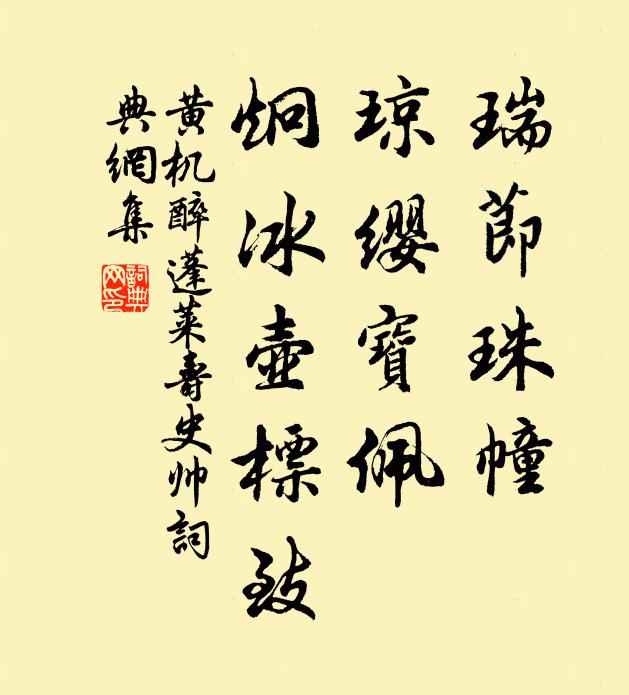 瑞節珠幢
瓊纓寶佩
炯冰壺標致
黄机醉蓬萊壽史帅詞
典網集
詞典网印